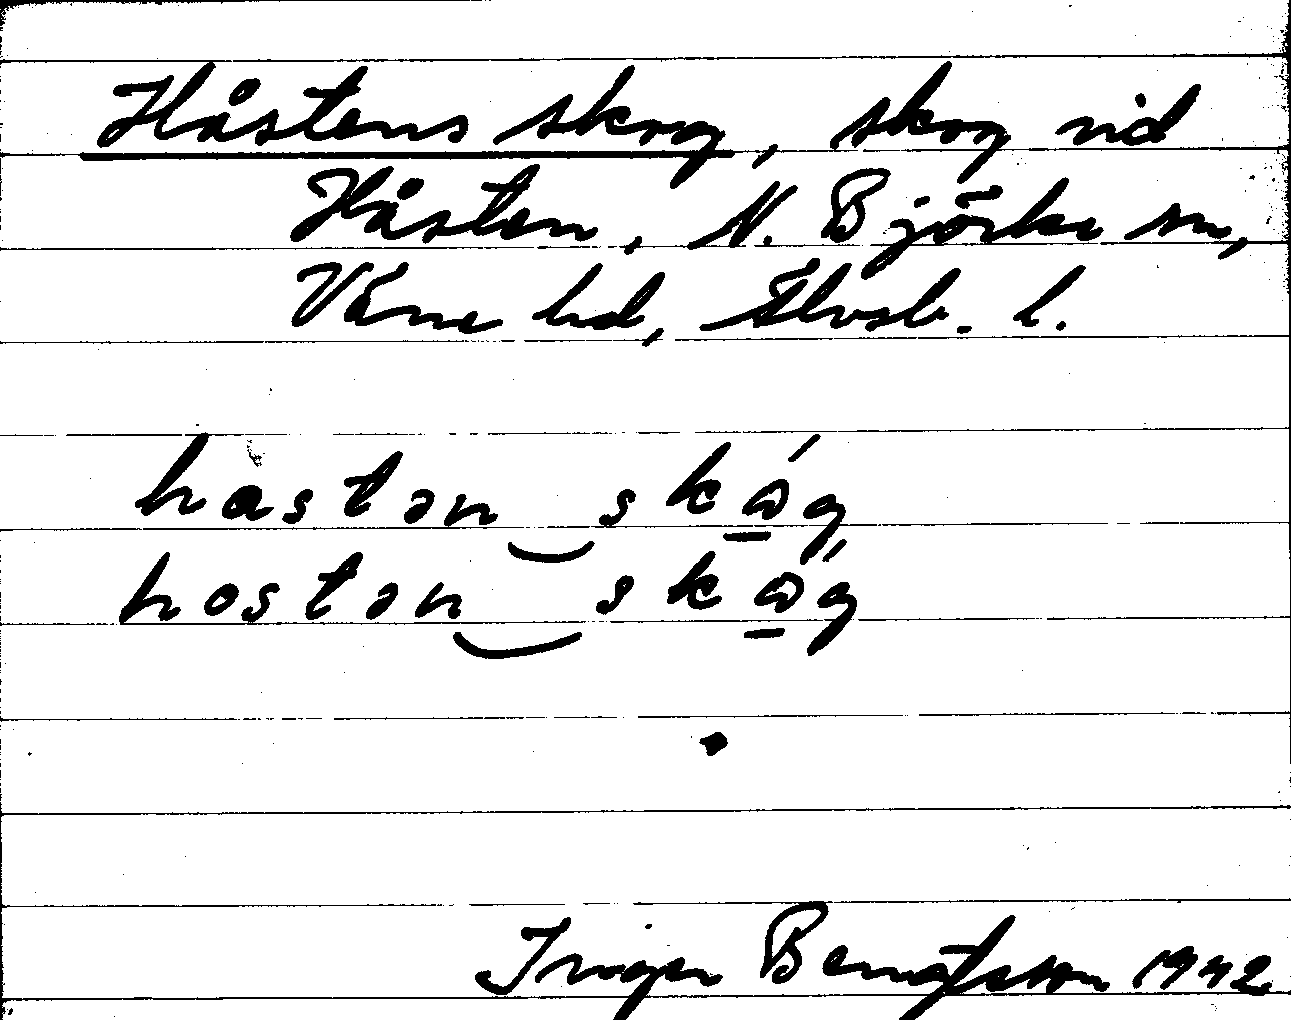 Håstens skog, skog vid
Håsten, N. Björke sn,
Väne hd, Älvsb. l.
hastən‿skɷ́g
hostən‿skɷ́g
Inger Bengtsson 1942